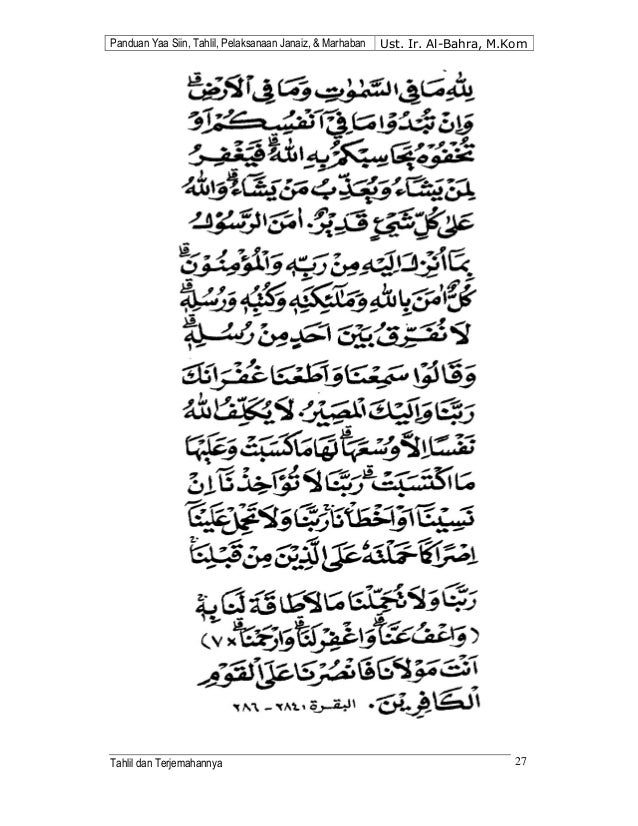 Panduan Yaa Siin, Tahlil, Pelaksanaan Janaiz, & Marhaban Ust. Ir. Al-Bahra, M.Kom
لِلّٰهِ مَا فِى السَّمٰوٰتِ وَمَا فِى الْاَرْضِۗ
وَاِنْ تُبْدُوْا مَا فِيْٓ اَنْفُسِكُمْ اَوْ
تُخْفُوْهُ يُحَاسِبْكُمْ بِهِ اللّٰهُۗ فَيَغْفِرُ
لِمَنْ يَشَآءُ وَيُعَذِّبُ مَنْ يَشَآءُۗ وَاللّٰهُ
عَلٰى كُلِّ شَيْءٍ قَدِيْرٌ. اٰمَنَ الرَّسُوْلُ
بِمَآ اُنْزِلَ اِلَيْهِ مِنْ رَبِّهٖ وَالْمُؤْمِنُوْنَۗ
كُلٌّ اٰمَنَ بِاللّٰهِ وَمَلٰٓئِكَتِهٖ وَكُتُبِهٖ وَرُسُلِهٖۗ
لَا نُفَرِّقُ بَيْنَ اَحَدٍ مِنْ رُسُلِهٖۗ
وَقَالُوْا سَمِعْنَا وَاَطَعْنَا غُفْرَانَكَ
رَبَّنَا وَاِلَيْكَ الْمَصِيْرُ. لَا يُكَلِّفُ اللّٰهُ
نَفْسًا اِلَّا وُسْعَهَاۗ لَهَا مَا كَسَبَتْ وَعَلَيْهَا
مَا اكْتَسَبَتْۗ رَبَّنَا لَا تُؤَاخِذْنَآ اِنْ
نَسِيْنَآ اَوْ اَخْطَأْنَا رَبَّنَا وَلَا تَحْمِلْ عَلَيْنَآ
اِصْرًا كَمَا حَمَلْتَهٗ عَلَى الَّذِيْنَ مِنْ قَبْلِنَا
رَبَّنَا وَلَا تُحَمِّلْنَا مَا لَا طَاقَةَ لَنَا بِهٖ
(وَاعْفُ عَنَّاۗ وَاغْفِرْ لَنَاۗ وَارْحَمْنَاۗ ×٧)
اَنْتَ مَوْلَانَا فَانْصُرْنَا عَلَى الْقَوْمِ
الْكَافِرِيْنَ. البقرة، ٢٨٤ – ٢٨٦
Tahlil dan Terjemahannya 27